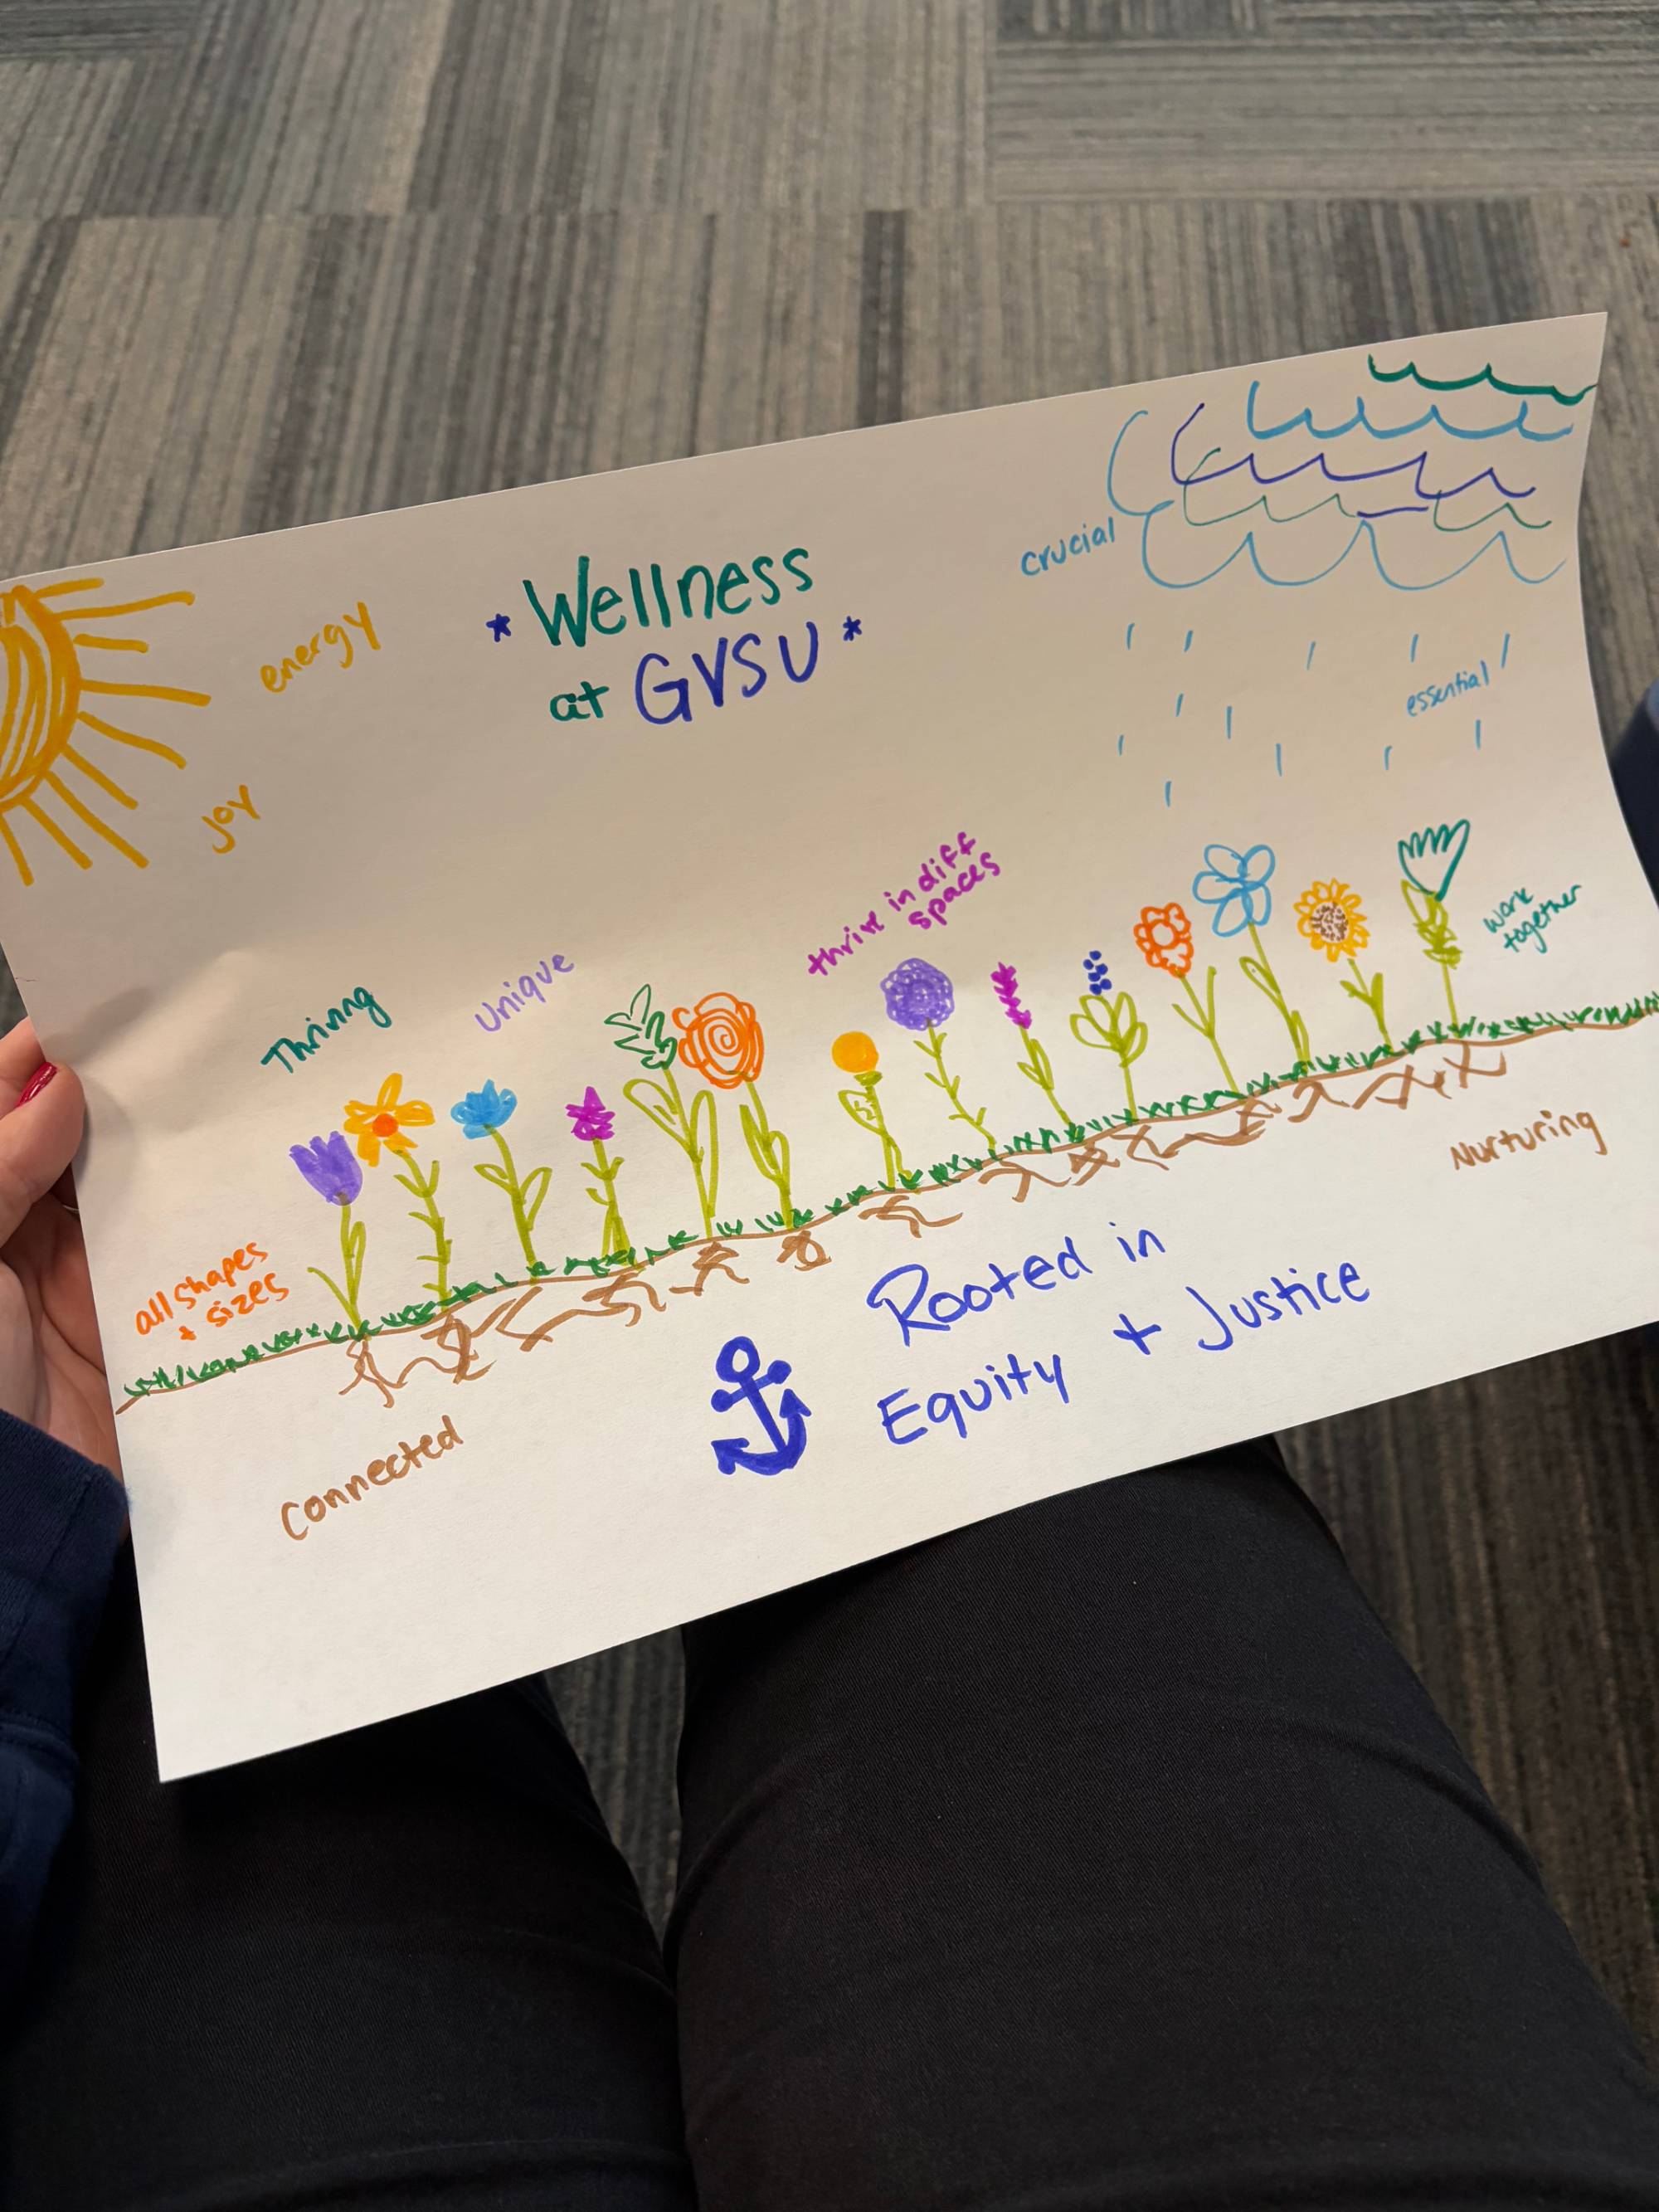 crucial
* Wellness
at GVSU *
energy
essential
joy
thrive in diff
spaces
work
together
unique
Thriving
Nurturing
all shapes
+ sizes
Rooted in
Equity + Justice
Connected